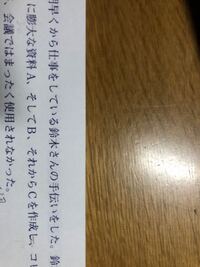 早くから仕事をしている鈴木さんの手伝いをした。鈴
に膨大な資料A、そしてB、それからCを作成し、コ
、会議ではまったく使用されなかった。